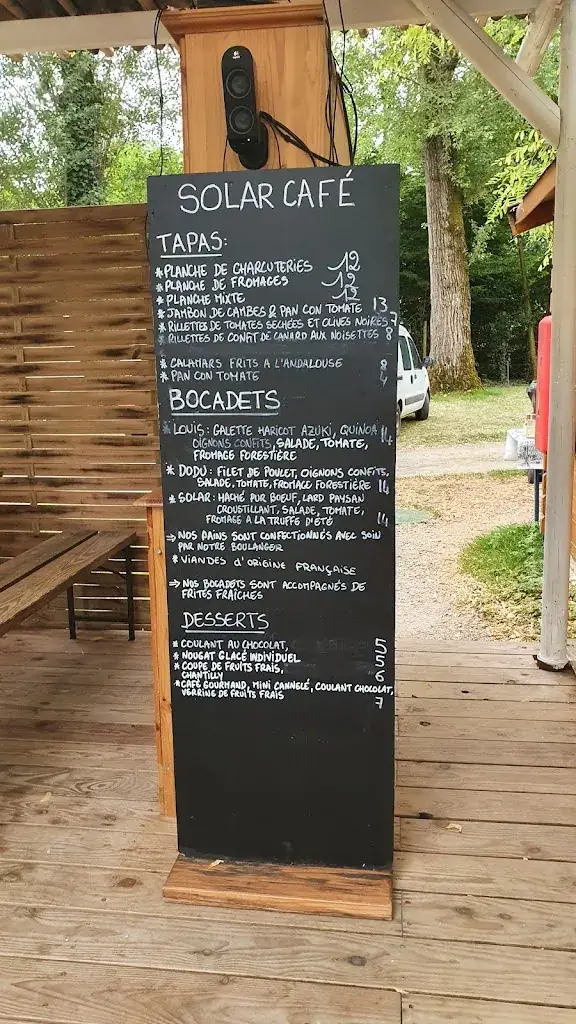 SOLAR CAFÉ
TAPAS:
* PLANCHE DE CHARCUTERIES 12
* PLANCHE DE FROMAGES 12
* PLANCHE MIXTE 12
* JAMBON DE CAMBES & PAN CON TOMATE 13
* RILLETTES DE TOMATES SECHÉES ET OLIVES NOIRES 7
* RILLETTES DE CONFIT DE CANARD AUX NOISETTES 8
* CALAMARS FRITS A L'ANDALOUSE 8
* PAN CON TOMATE 4
BOCADETS
* LOUIS: GALETTE HARICOT AZUKI, QUINOA 14
OIGNONS CONFITS, SALADE, TOMATE,
FROMAGE FORESTIÈRE
* DODU: FILET DE POULET, OIGNONS CONFITS,
SALADE, TOMATE, FROMAGE FORESTIÈRE 14
* SOLAR: HACHÉ PUR BOEUF, LARD PAYSAN
CROUSTILLANT, SALADE, TOMATE,
FROMAGE A LA TRUFFE D'ÉTÉ 14
⇒ NOS PAINS SONT CONFECTIONNÉS AVEC SOIN
PAR NOTRE BOULANGER
* VIANDES D'ORIGINE FRANÇAISE
⇒ NOS BOCADETS SONT ACCOMPAGNÉS DE
FRITES FRAÎCHES
DESSERTS
* COULANT AU CHOCOLAT, 5
* NOUGAT GLACÉ INDIVIDUEL 5
* COUPE DE FRUITS FRAIS, 6
CHANTILLY
* CAFÉ GOURMAND, MINI CANNELÉ, COULANT CHOCOLAT,
VERRINE DE FRUITS FRAIS 7